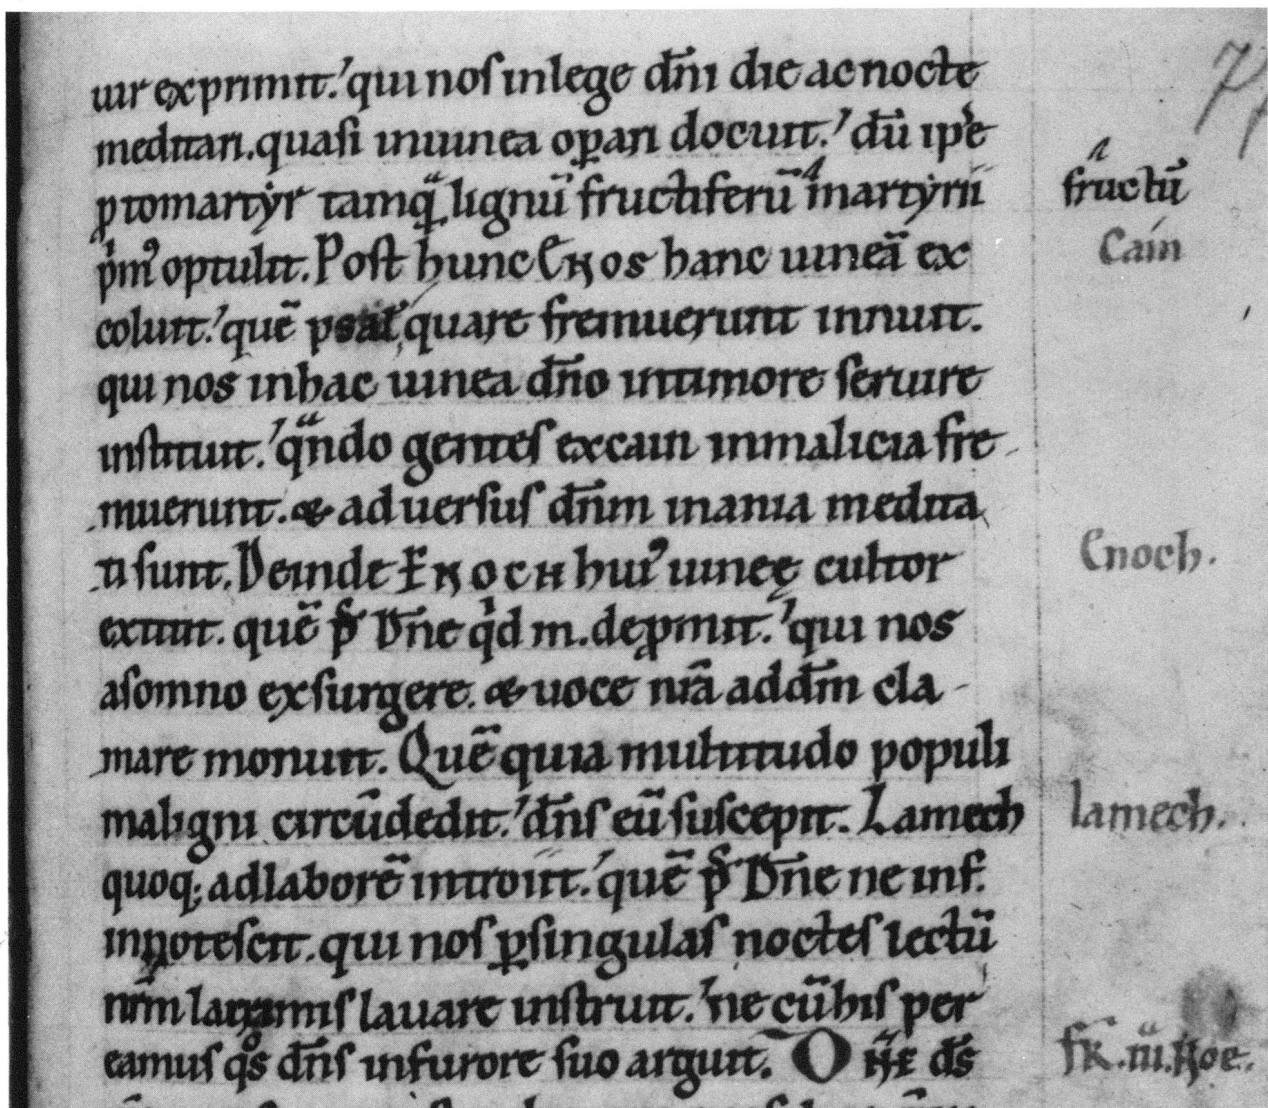 uir exprimit. qui nos in lege dn̄i die ac nocte
meditari. quasi in uinea op̲ari docuit. dū ip̄e
p̲tomartẏr tamq̄ lignū fructiferū in martẏrii
fructū
p̄mꝰ optulit. Post hunc Enos hanc uineā ex
Cain
coluit. quē psal̄ quare fremuerunt innuit.
qui nos in hac uinea dn̄o in timore seruire
instituit. qᵃndo gentes ex cain in malicia fre-
muerunt. & aduersus dn̄m inania medita
ti sunt. Deinde ENOCH huiꝰ uineę cultor
Enoch.
extitit. quē pˢ Dn̄e qid m. dep̲mit. qui nos
a somno exsurgere. & uoce nr̄a ad dn̄m cla-
mare monuit. Quē quia multitudo populi
maligni circūdedit. dn̄s eū suscepit. Lamech
lamech.
quoq; ad laborē introiit. quē pˢ Dn̄e ne inf.
innotescit. qui nos p̲ singulas noctes lectū
nr̄m lacrimis lauare instruit. ne cū his per
eamus qᵒs dn̄s in furore suo arguit. O dˢ